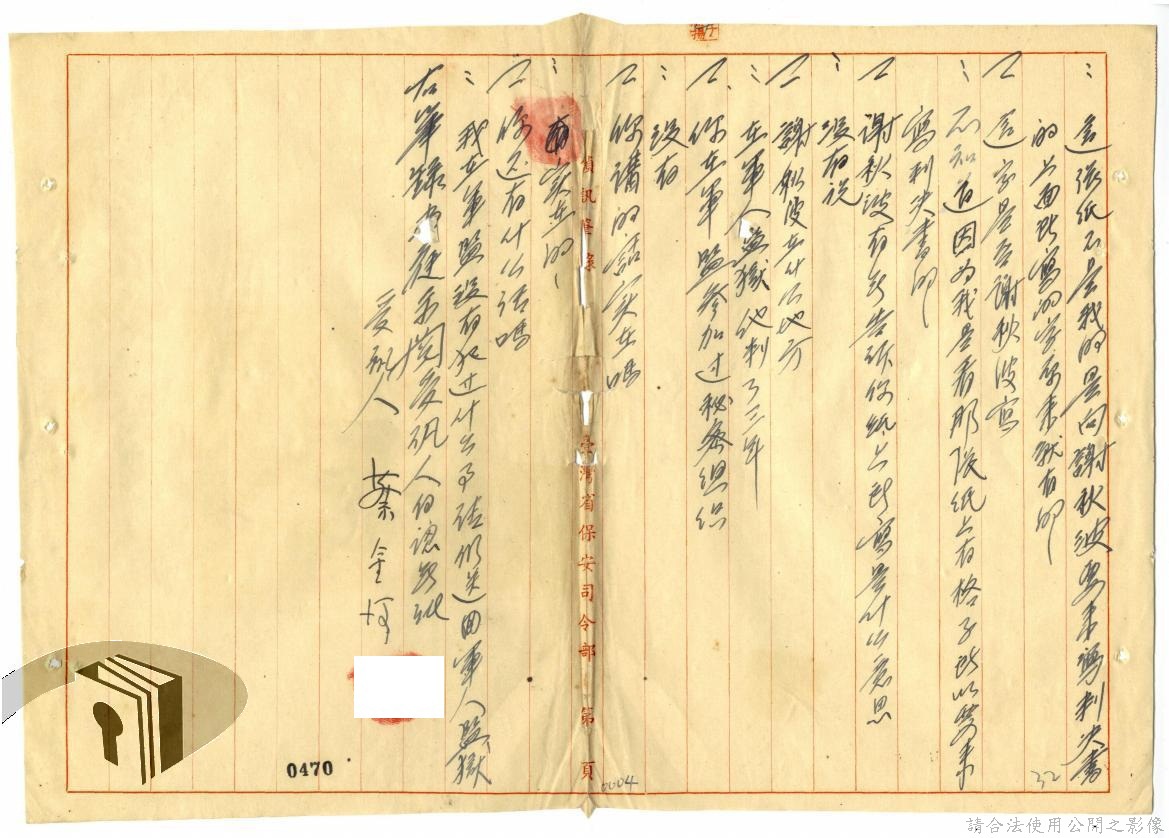 ：這張紙不是我的是向謝秋波要來寫判決書
的上面所寫的字原來就有的
二這字是否謝秋波寫
：不知道因為我是看那張紙上有格子所以要來
寫判決書的
二謝秋波有否告訴你紙上所寫是什么意思
：沒有說
二謝秋波在什么地方
：在軍人監獄他判了三年
二你在軍監參加过秘密組织
：沒有
二你講的話实在嗎
：实在的
偵訊筆錄 臺灣省保安司令部 第 頁
二你还有什么話嗎
：我在軍監沒有犯过什么事請你送回軍人監獄
右筆錄受訊人
受訊人 蔡金河
0470
0004
32
請合法使用公開之影像